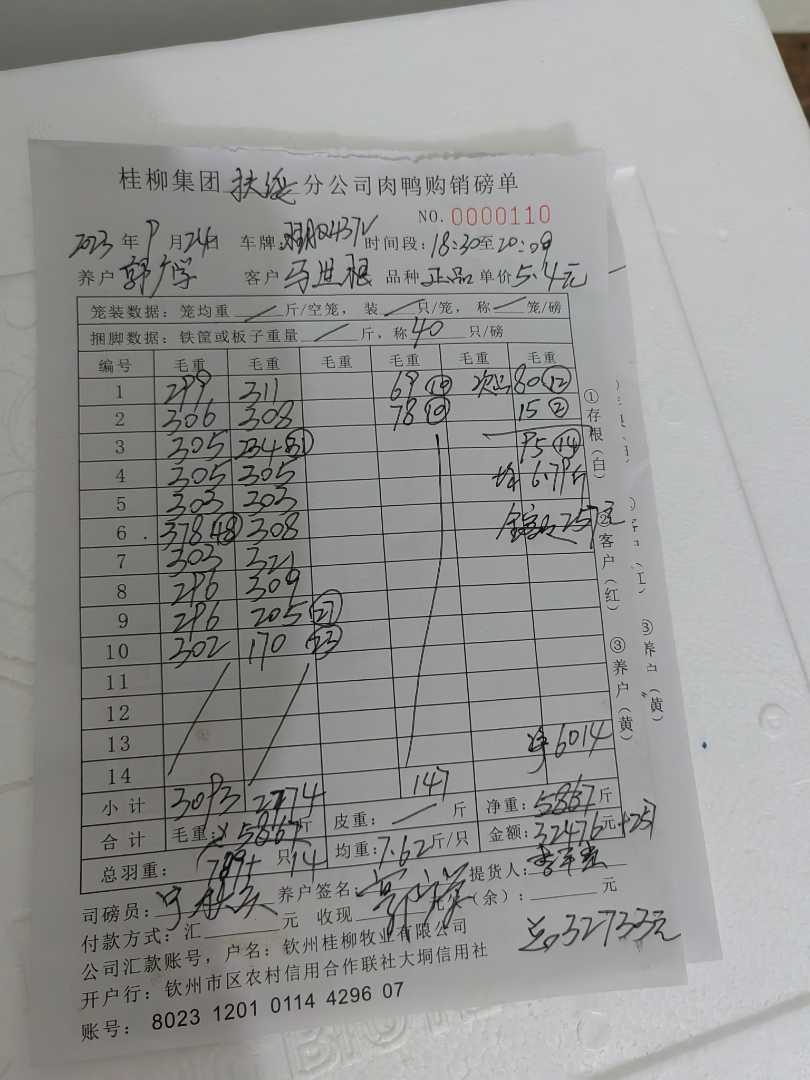 桂柳集团扶绥分公司肉鸭购销磅单
NO.0000110
2023年9月24日 车牌: 时间段:18:30至20:09
养户郭广学 客户马世根 品种正品单价5.4元
笼装数据:笼均重 斤/空笼, 装 只/笼, 称 笼/磅
捆脚数据:铁筐或板子重量 斤, 称40 只/磅
编号 毛重 毛重 毛重 毛重 毛重 毛重
1 299 311 69⑩ 次品80⑫
2 306 308 78⑩ 15②
3 305 234㉛ 95⑭
4 305 305 均6.79斤
5 303 303
6 378㊽ 308 金额257元
7 303 321
8 296 309
9 296 205㉗
10 302 170㉓
11
12
13 净6014
14
小计 3093 2774 147
合计 毛重:5867斤 皮重: 斤 净重:5867斤
总羽重: 789+14只 均重:7.62斤/只 金额:32476元+257
司磅员: 养户签名: 提货人:
付款方式:汇 元 收现 (余): 元
总32733元
公司汇款账号,户名:钦州桂柳牧业有限公司
开户行:钦州市区农村信用合作联社大垌信用社
账号: 8023 1201 0114 4296 07
①存根(白)
②客户(红)
③养户(黄)
③养户(黄)